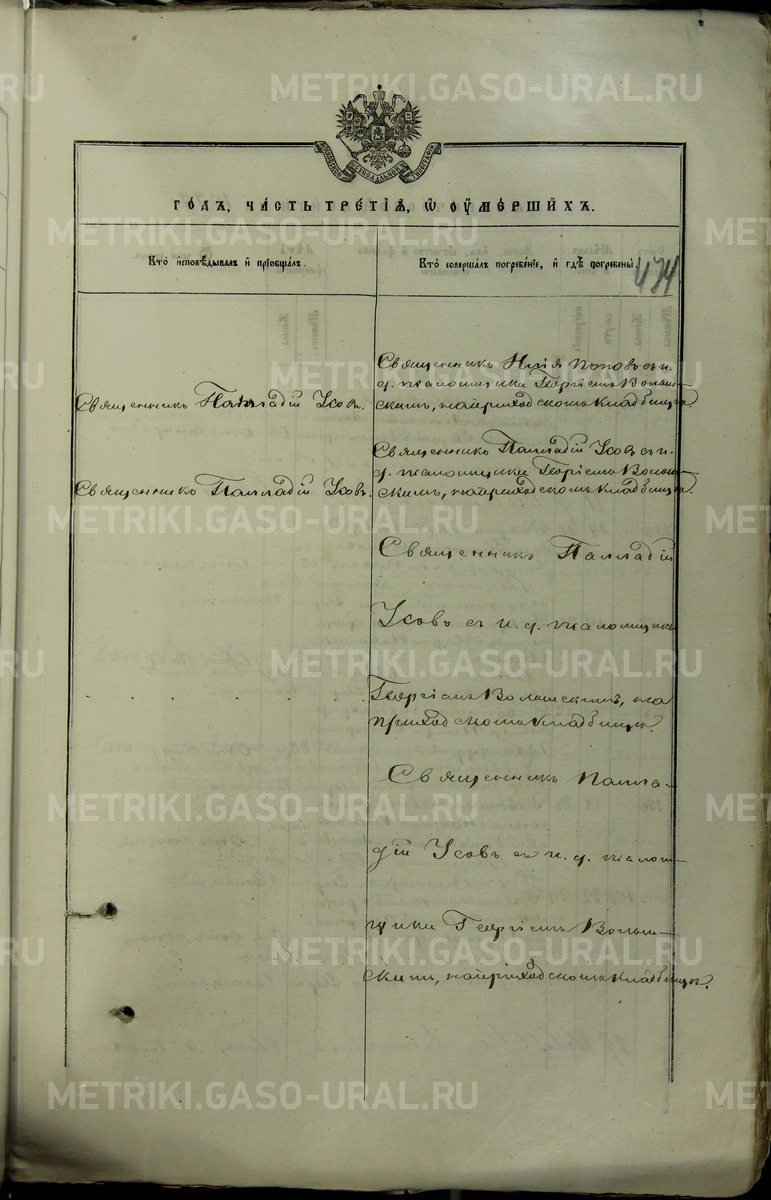 METRIKI.GASO-URAL.RU
МОСКОВСКОЙ СУНОДАЛЬНОЙ ТИПОГРАФІИ
ГОДЪ, ЧАСТЬ ТРЕТІѦ, Ѡ ОУМЕРШИХЪ.
Кто исповѣдывалъ и пріобщалъ.
Кто совершалъ погребеніе, и гдѣ погребены.
474
Священникъ Палладій Усовъ.
Священникъ Попов съ и.
д. псаломщика Георгіемъ Вольш-
скимъ, на приходскомъ кладбищѣ.
Священникъ Палладій Усовъ.
Священникъ Палладій Усовъ съ и.
д. псаломщика Георгіемъ Вольш-
скимъ, на приходскомъ кладбищѣ.
Священникъ Палладій
Усовъ съ и. д. псаломщика
Георгіемъ на
приходскомъ кладбищѣ.
Священникъ Палла-
дій Усовъ съ и. д. псалом-
щика Георгіемъ Вольш-
скимъ, на приходскомъ кладбищѣ.